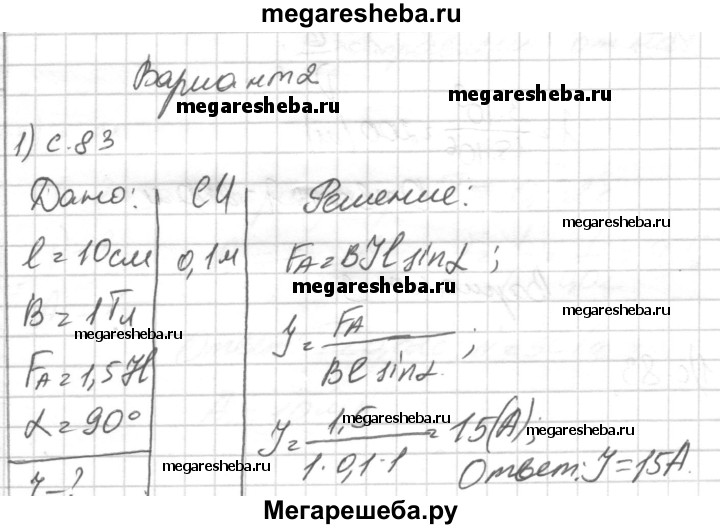 megaresheba.ru
Вариант 2
megaresheba.ru
megaresheba.ru
1) с.83
Дано:
СИ
Решение:
megaresheba.ru
l = 10 см
0,1 м
F_A = BIl sinα ;
megaresheba.ru
B = 1 Тл
megaresheba.ru
megaresheba.ru
I = F_A / Bl sinα ;
F_A = 1,5 Н
α = 90°
megaresheba.ru
megaresheba.ru
I = 1,5 / 1·0,1·1 = 15 (А);
megaresheba.ru
megaresheba.ru
I - ?
Ответ: I = 15 А.
Мегарешеба.ру